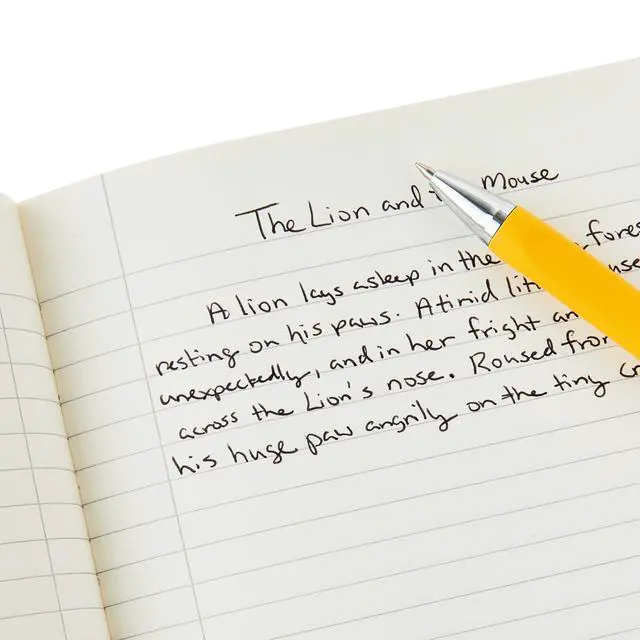 The Lion and Mouse
A lion lays asleep in the
resting on his paws. A timid
unexpectedly, and in her fright
across the Lion's nose. Roused
his huge paw angrily on the tiny